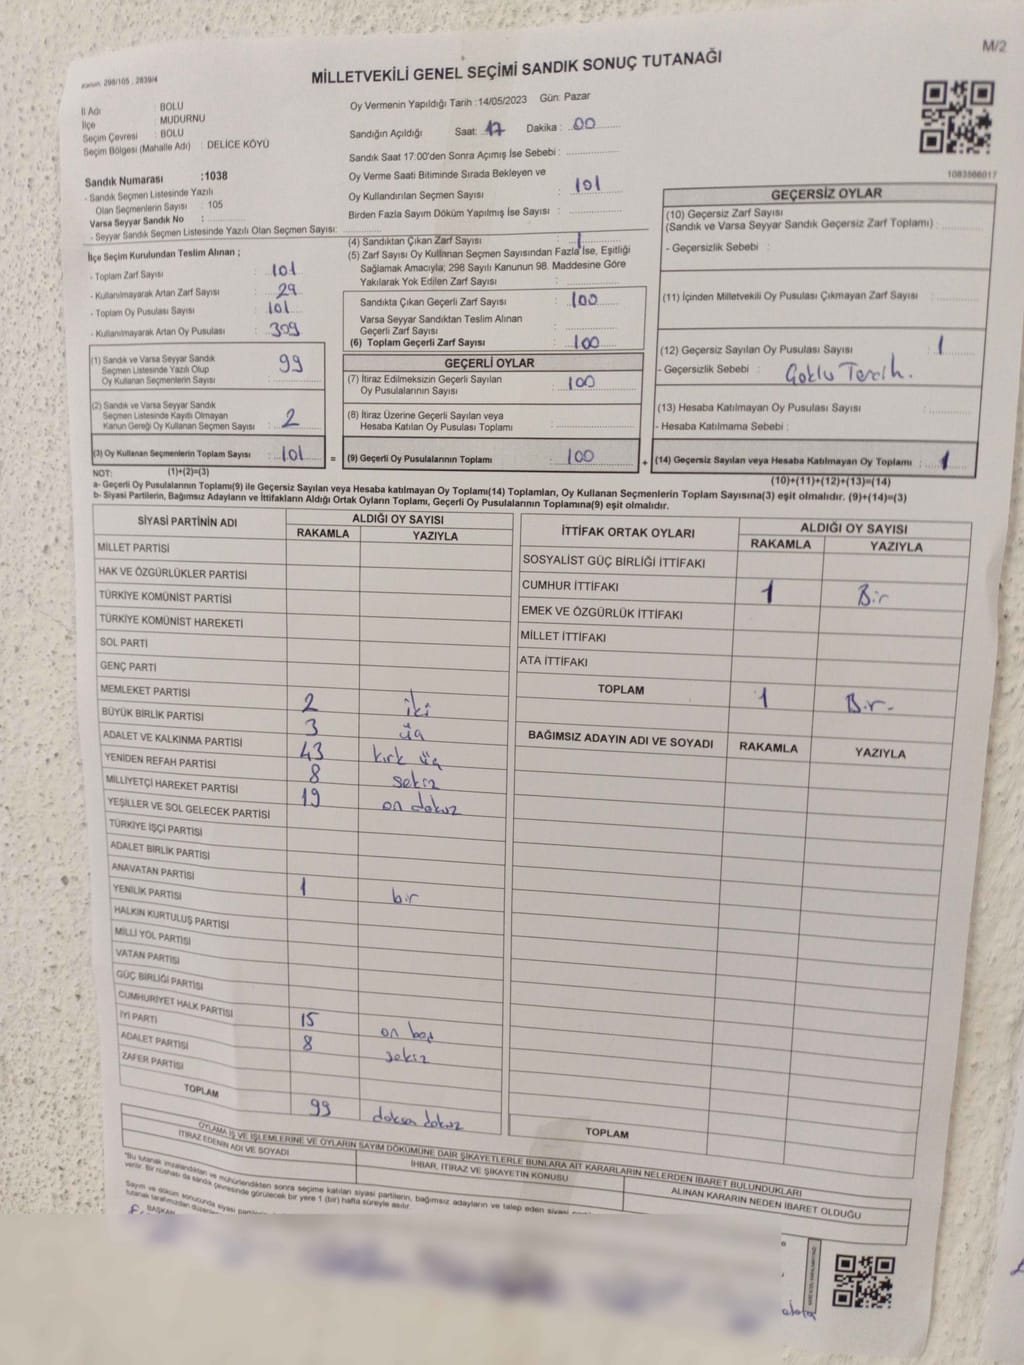 M/2
Kanun: 298/105 , 2839/4
MİLLETVEKİLİ GENEL SEÇİMİ SANDIK SONUÇ TUTANAĞI
İl Adı : BOLU
İlçe : MUDURNU
Seçim Çevresi : BOLU
Seçim Bölgesi (Mahalle Adı) : DELİCE KÖYÜ
Oy Vermenin Yapıldığı Tarih :14/05/2023 Gün: Pazar
Sandığın Açıldığı Saat: 17 Dakika : 00
Sandık Saat 17:00'den Sonra Açımış İse Sebebi :
Oy Verme Saati Bitiminde Sırada Bekleyen ve
Oy Kullandırılan Seçmen Sayısı 101
Birden Fazla Sayım Döküm Yapılmış İse Sayısı :
1083506017
Sandık Numarası :1038
- Sandık Seçmen Listesinde Yazılı
Olan Seçmenlerin Sayısı : 105
Varsa Seyyar Sandık No :
- Seyyar Sandık Seçmen Listesinde Yazılı Olan Seçmen Sayısı:
İlçe Seçim Kurulundan Teslim Alınan ;
- Toplam Zarf Sayısı : 101
- Kullanılmayarak Artan Zarf Sayısı : 29
- Toplam Oy Pusulası Sayısı : 101
- Kullanılmayarak Artan Oy Pusulası : 309
(1) Sandık ve Varsa Seyyar Sandık
Seçmen Listesinde Yazılı Olup
Oy Kullanan Seçmenlerin Sayısı : 99
(2) Sandık ve Varsa Seyyar Sandık
Seçmen Listesinde Kayıtlı Olmayan
Kanun Gereği Oy Kullanan Seçmen Sayısı : 2
(3) Oy Kullanan Seçmenlerin Toplam Sayısı : 101 =
(4) Sandıktan Çıkan Zarf Sayısı : 1
(5) Zarf Sayısı Oy Kullanan Seçmen Sayısından Fazla İse, Eşitliği
Sağlamak Amacıyla; 298 Sayılı Kanunun 98. Maddesine Göre
Yakılarak Yok Edilen Zarf Sayısı :
Sandıkta Çıkan Geçerli Zarf Sayısı : 100
Varsa Seyyar Sandıktan Teslim Alınan
Geçerli Zarf Sayısı :
(6) Toplam Geçerli Zarf Sayısı : 100
GEÇERLİ OYLAR
(7) İtiraz Edilmeksizin Geçerli Sayılan
Oy Pusulalarının Sayısı : 100
(8) İtiraz Üzerine Geçerli Sayılan veya
Hesaba Katılan Oy Pusulası Toplamı :
(9) Geçerli Oy Pusulalarının Toplamı : 100 +
GEÇERSİZ OYLAR
(10) Geçersiz Zarf Sayısı
(Sandık ve Varsa Seyyar Sandık Geçersiz Zarf Toplamı) :
- Geçersizlik Sebebi :
(11) İçinden Milletvekili Oy Pusulası Çıkmayan Zarf Sayısı :
(12) Geçersiz Sayılan Oy Pusulası Sayısı : 1
- Geçersizlik Sebebi : Çoklu Tercih.
(13) Hesaba Katılmayan Oy Pusulası Sayısı :
- Hesaba Katılmama Sebebi :
(14) Geçersiz Sayılan veya Hesaba Katılmayan Oy Toplamı : 1
NOT: (1)+(2)=(3)
(10)+(11)+(12)+(13)=(14)
a- Geçerli Oy Pusulaları Toplamı(9) ile Geçersiz Sayılan veya Hesaba katılmayan Oy Toplamı(14) Toplamları, Oy Kullanan Seçmenlerin Toplam Sayısına(3) eşit olmalıdır. (9)+(14)=(3)
b- Siyasi Partilerin, Bağımsız Adayların ve İttifakların Aldığı Ortak Oyların Toplamı, Geçerli Oy Pusulalarının Toplamına(9) eşit olmalıdır.
SİYASİ PARTİNİN ADI ALDIĞI OY SAYISI
RAKAMLA YAZIYLA
MİLLET PARTİSİ
HAK VE ÖZGÜRLÜKLER PARTİSİ
TÜRKİYE KOMÜNİST PARTİSİ
TÜRKİYE KOMÜNİST HAREKETİ
SOL PARTİ
GENÇ PARTİ
MEMLEKET PARTİSİ 2 iki
BÜYÜK BİRLİK PARTİSİ 3 üç
ADALET VE KALKINMA PARTİSİ 43 kırk üç
YENİDEN REFAH PARTİSİ 8 sekiz
MİLLİYETÇİ HAREKET PARTİSİ 19 on dokuz
YEŞİLLER VE SOL GELECEK PARTİSİ
TÜRKİYE İŞÇİ PARTİSİ
ADALET BİRLİK PARTİSİ
ANAVATAN PARTİSİ 1 bir
YENİLİK PARTİSİ
HALKIN KURTULUŞ PARTİSİ
MİLLİ YOL PARTİSİ
VATAN PARTİSİ
GÜÇ BİRLİĞİ PARTİSİ
CUMHURİYET HALK PARTİSİ 15 on beş
İYİ PARTİ 8 sekiz
ADALET PARTİSİ
ZAFER PARTİSİ
TOPLAM 99 doksan dokuz
İTTİFAK ORTAK OYLARI ALDIĞI OY SAYISI
RAKAMLA YAZIYLA
SOSYALİST GÜÇ BİRLİĞİ İTTİFAKI
CUMHUR İTTİFAKI 1 Bir
EMEK VE ÖZGÜRLÜK İTTİFAKI
MİLLET İTTİFAKI
ATA İTTİFAKI
TOPLAM 1 Bir.
BAĞIMSIZ ADAYIN ADI VE SOYADI RAKAMLA YAZIYLA
TOPLAM
OYLAMA İŞ VE İŞLEMLERİNE VE OYLARIN SAYIM DÖKÜMÜNE DAİR ŞİKAYETLERLE BUNLARA AİT KARARLARIN NELERDEN İBARET BULUNDUKLARI
İTİRAZ EDENİN ADI VE SOYADI İHBAR, İTİRAZ VE ŞİKAYETİN KONUSU ALINAN KARARIN NEDEN İBARET OLDUĞU
"Bu tutanak imzalandıktan ve mühürlendikten sonra seçime katılan siyasi partilerin, bağımsız adayların ve talep eden siyasi
verilir. Bir nüshası da sandık çevresinde görülecek bir yere 1 (bir) hafta süreyle asılır.
Sayım ve döküm sonucunda siyasi
BAŞKAN